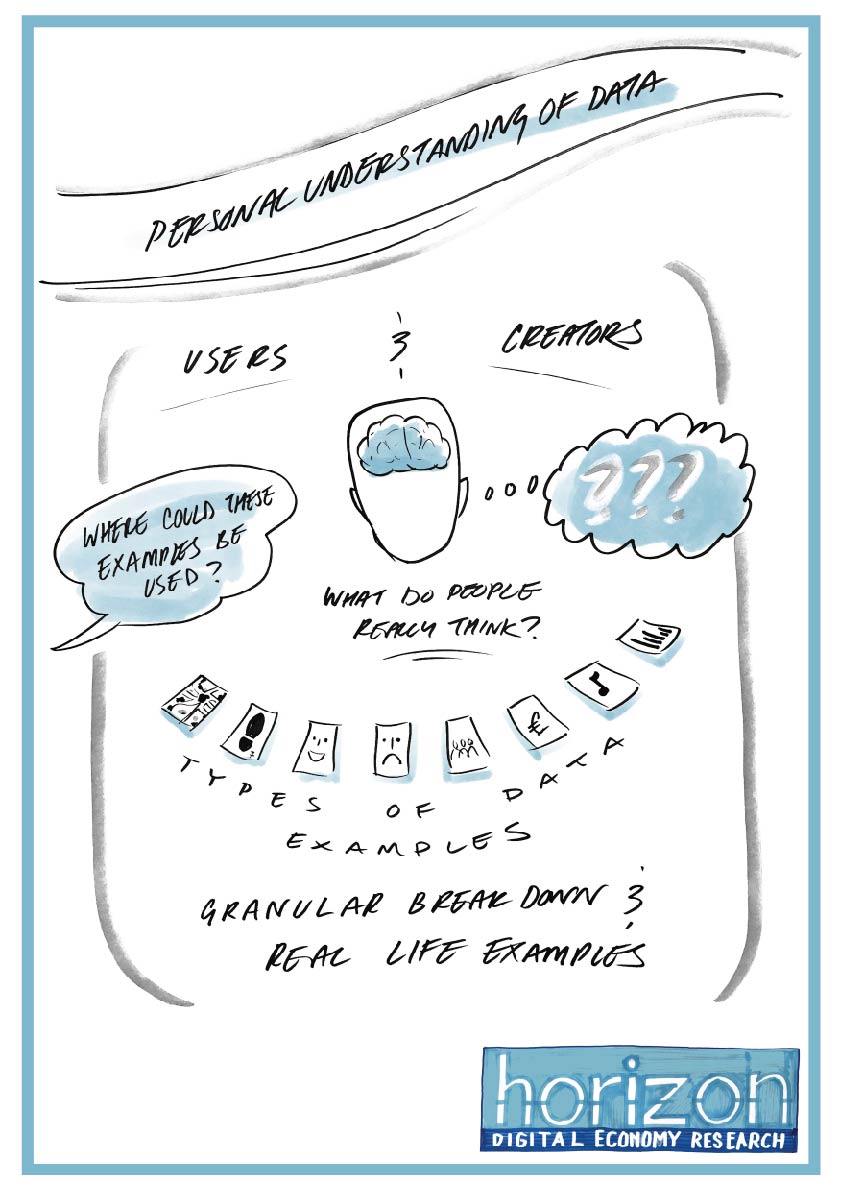 PERSONAL UNDERSTANDING OF DATA
USERS & CREATORS
WHERE COULD THESE
EXAMPLES BE
USED?
???
WHAT DO PEOPLE
REALLY THINK?
€
TYPES OF DATA
EXAMPLES
GRANULAR BREAKDOWN &
REAL LIFE EXAMPLES
horizon
DIGITAL ECONOMY RESEARCH